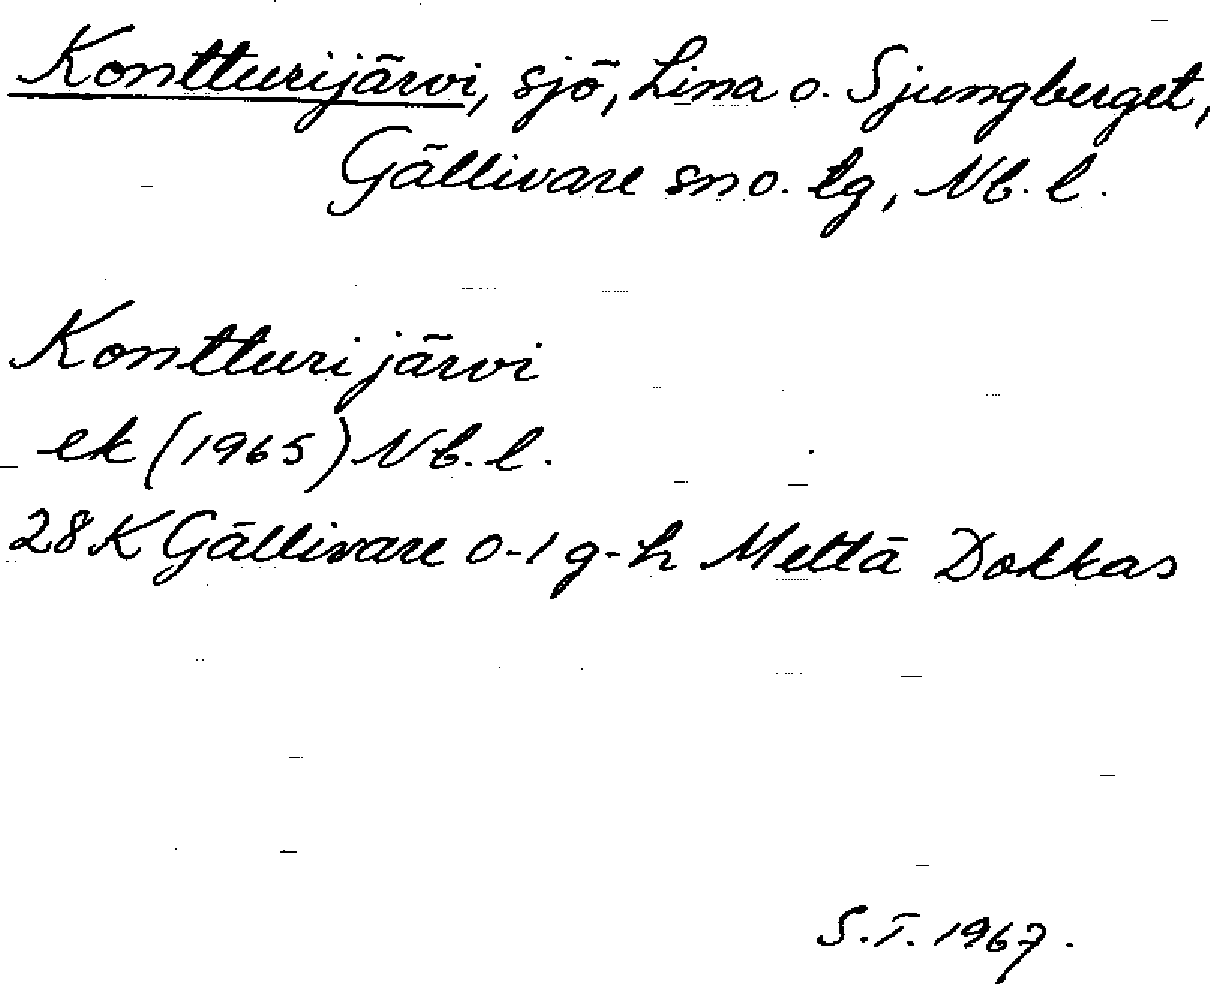 Kontturijärvi, sjö, Lina o. Sjungberget,
Gällivare sn o. tg, Nb. l.
Kontturijärvi
ek (1965) Nb. l.
28 K Gällivare 0-1 g-h Mettä Dokkas
S.T. 1967.